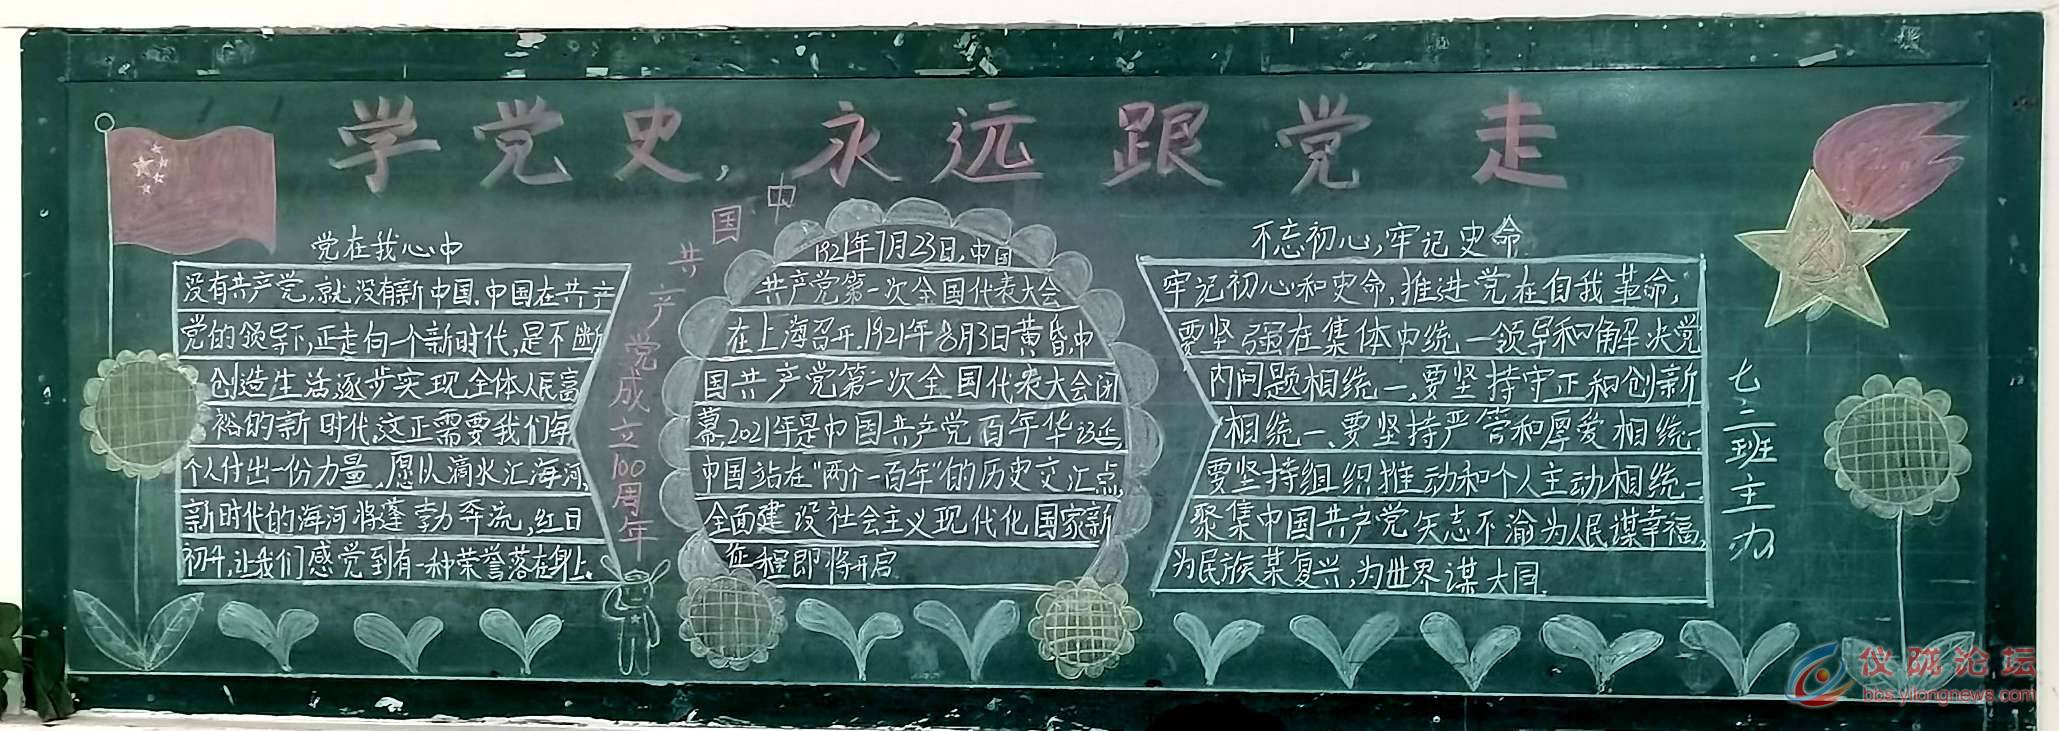 学党史,永远跟党走
党在我心中
没有共产党,就没有新中国.中国在共产
党的领导下,正走向一个新时代,是不断
创造生活,逐步实现全体人民富
裕的新时代,这正需要我们每
个人付出一份力量,愿以滴水汇海河,
新时代的海河将蓬勃奔流,红日
初升,让我们感觉到有一种荣誉落在身上.
中国共产党成立100周年
1921年7月23日,中国
共产党第一次全国代表大会
在上海召开.1921年8月3日黄昏,中
国共产党第一次全国代表大会闭
幕.2021年是中国共产党百年华诞,
中国站在"两个一百年"的历史交汇点,
全面建设社会主义现代化国家新
征程即将开启.
不忘初心,牢记史命
牢记初心和史命,推进党在自我革命,
要坚强在集体中统一领导和解决党
内问题相统一,要坚持守正和创新
相统一、要坚持严管和厚爱相统一
要坚持组织推动和个人主动相统一.
聚集中国共产党矢志不渝为人民谋幸福,
为民族某复兴,为世界谋大同.
七二班主办
仪陇论坛
bbs.yilongnews.com